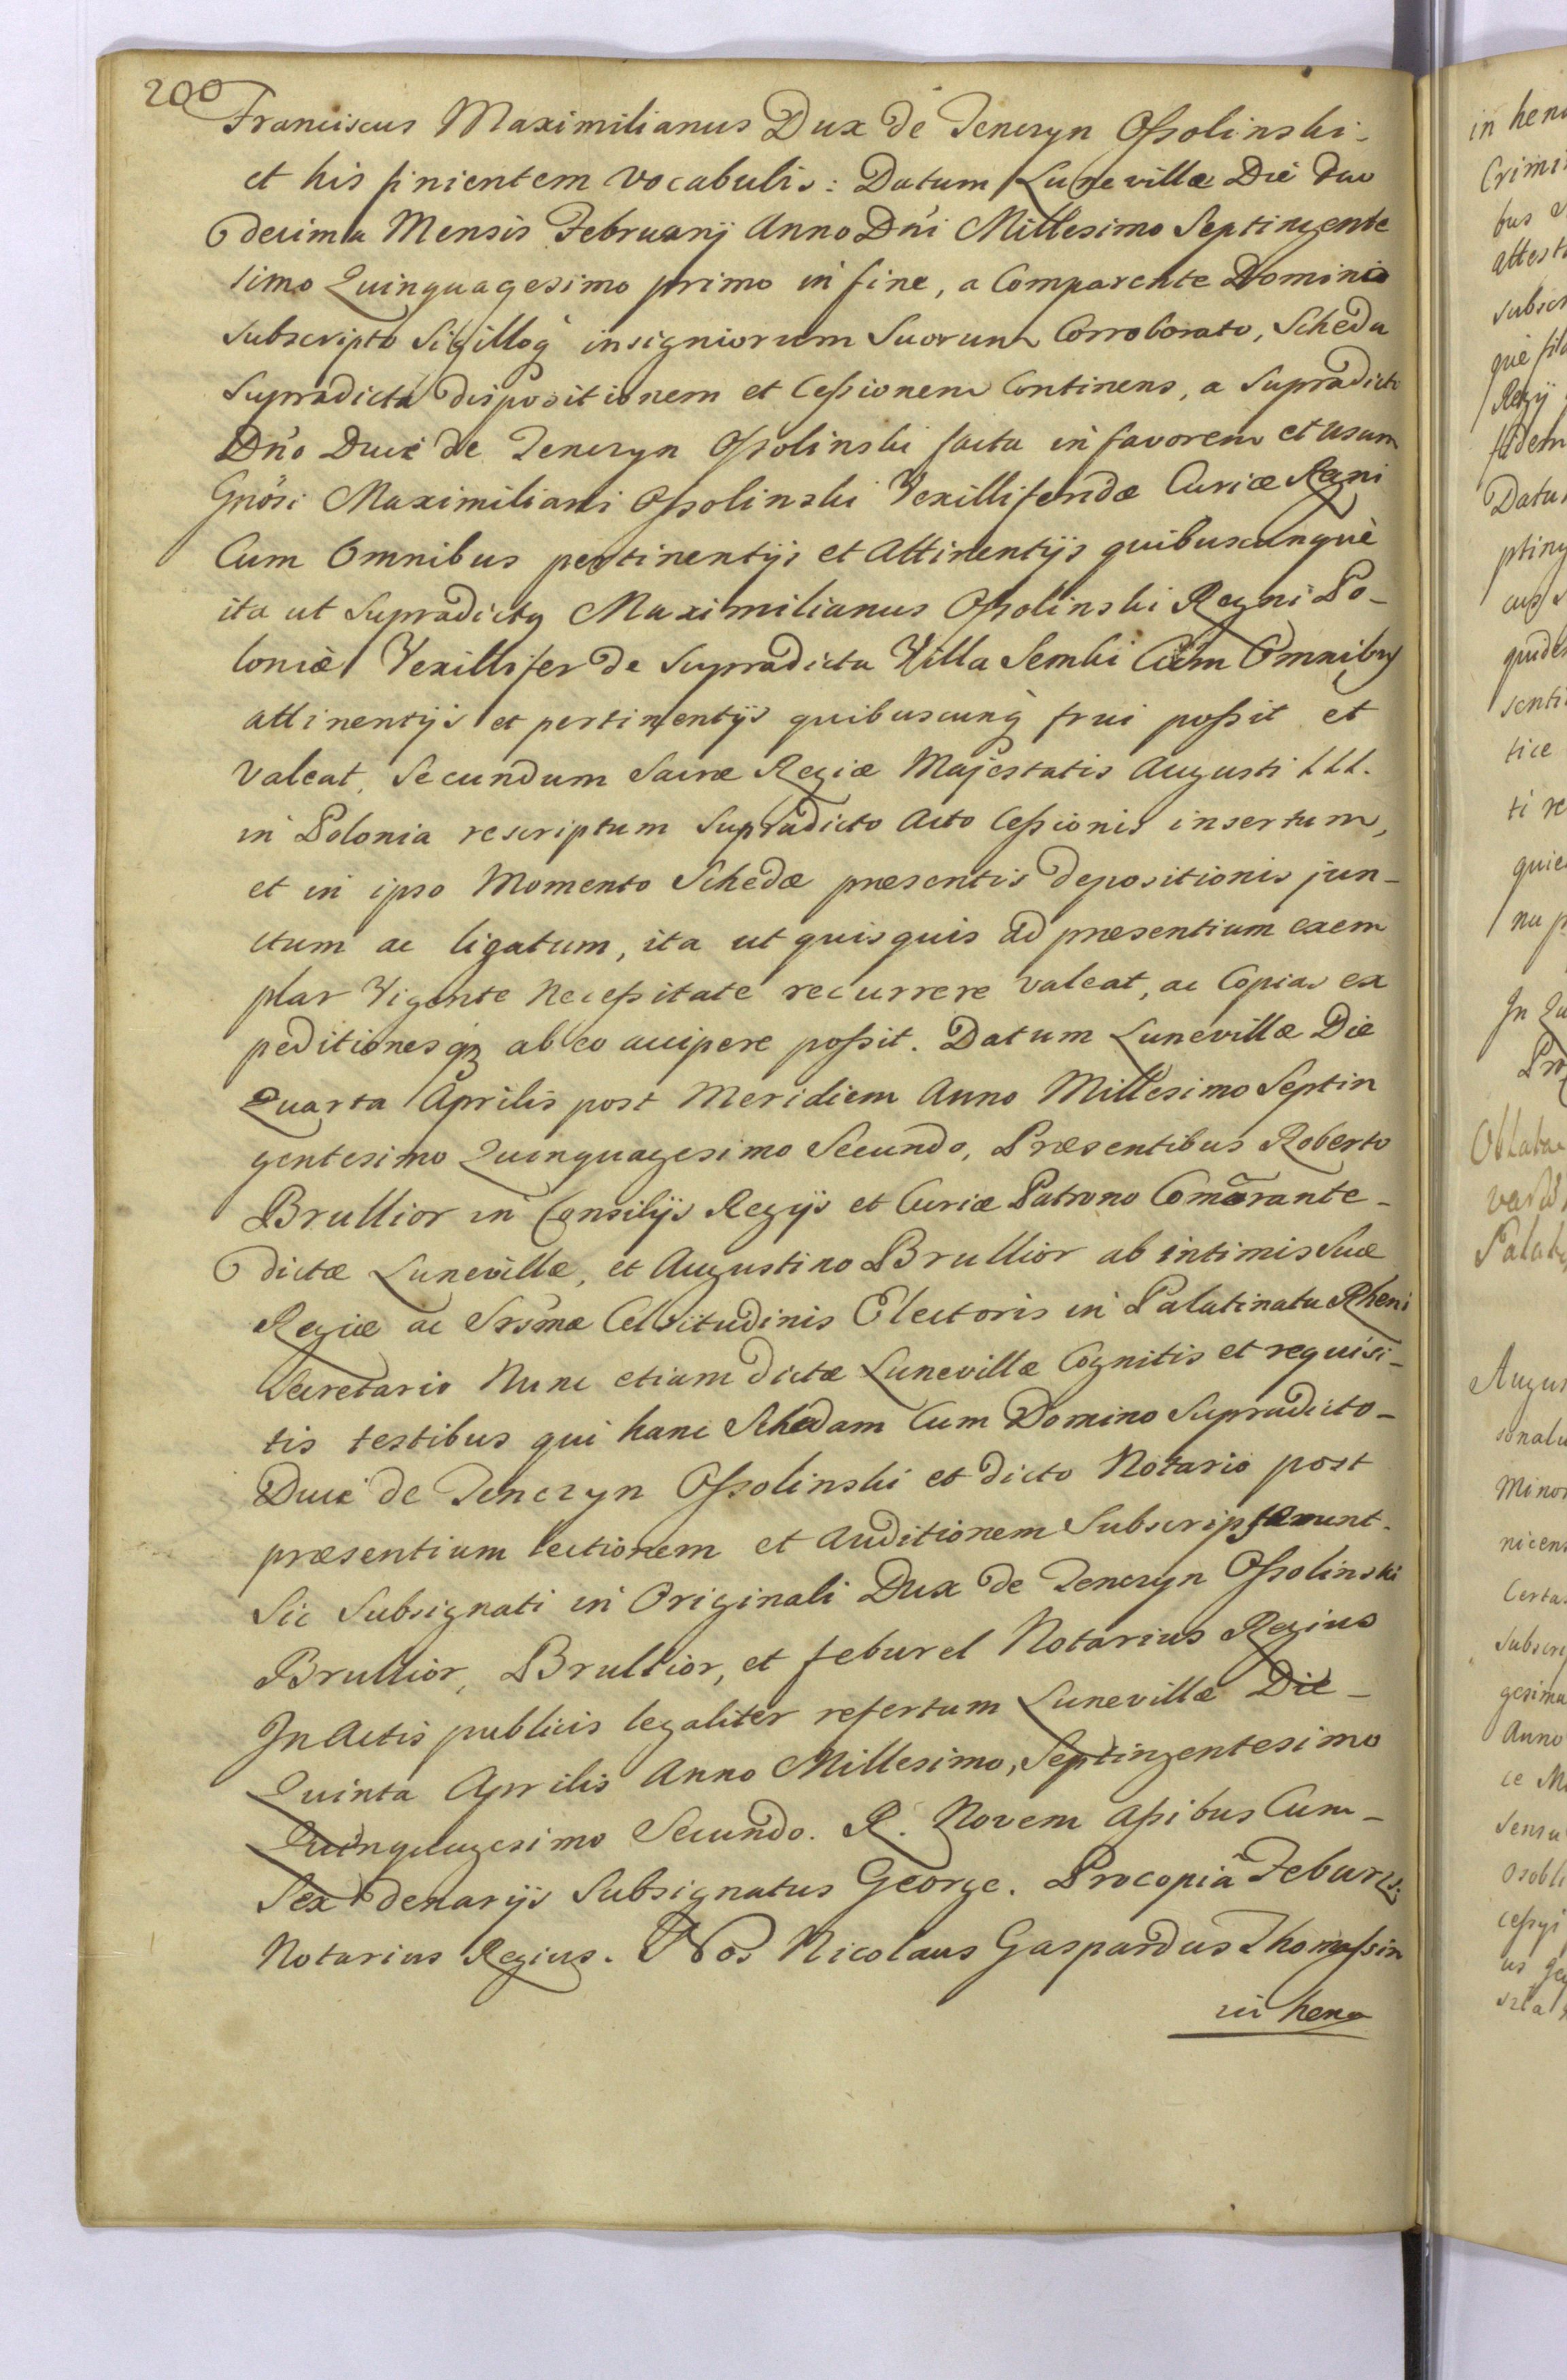 200
Franciscus Maximilianus Dux de Tenczyn Ossolinski
et his finientem vocabulis: Datum Lunevillæ Die duo
decima Mensis Februarij Anno Dñi Millesimo Septingente
simo Quinquagesimo primo in fine, a Comparente Domino
subscripto Sigilloq insigniorum Suorum Corroborato, Scheda
Supradicta dispositionem et Cessionem Continens, a Supradicto
Dño Duce de Tenczyn Ossolinski facta in favorem et usum
Gnosi Maximiliani Ossolinski Vexilliferidæ Curiæ Regni
Cum Omnibus pertinentijs et Attinentijs quibuscunque
ita ut Supradictus Maximilianus Ossolinski Regni Po-
loniæ Vexillifer de Supradicta Villa Semki Cum Omnibus
attinentijs et pertinentijs quibuscunq frui possit et
Valeat, Secundum Sacræ Regiæ Majestatis Augusti III.
in Polonia rescriptum Supradicto Acto Cessionis insertum,
et in ipso Momento Schedæ præsentis depositionis jun-
ctum ac ligatum, ita ut quisquis ad præsentium exem
plar Vigente Necessitate recurrere valeat, ac Copias ex
peditionesqz ab eo accipere possit. Datum Lunevillæ Die
Quarta Aprilis post Meridiem Anno Millesimo Septin
gentesimo Quinquagesimo Secundo, Præsentibus Roberto
Brullior in Consilijs Regijs et Curiæ Patrono Comorante-
dictæ Lunevillæ, et Augustino Brullior ab intimis Suæ
Regiæ ac Srsmæ Celsitudinis Electoris in Palatinatu Rheni
Secretario Nunc etiam dictæ Lunevillæ Cognitis et requisi-
tis testibus qui hanc Schedam Cum Domino Supradicto-
Duce de Tenczyn Ossolinski et dicto Notario post
præsentium lectionem et Auditionem Subscripserunt.
Sic Subsignati in Originali Dux de Tenczyn Ossolinski
Brullior, Brullior, et feburel Notarius Regius
In Actis publicis legaliter refertum Lunevillæ Die-
Quinta Aprilis Anno Millesimo, Septingentesimo
Quinquagesimo Secundo. R. Novem Assibus Cum-
Sex denarijs Subsignatus George. Pro copia Feburel
Notarius Regius. Nos Nicolaus Gaspardus Thomassin
in hen